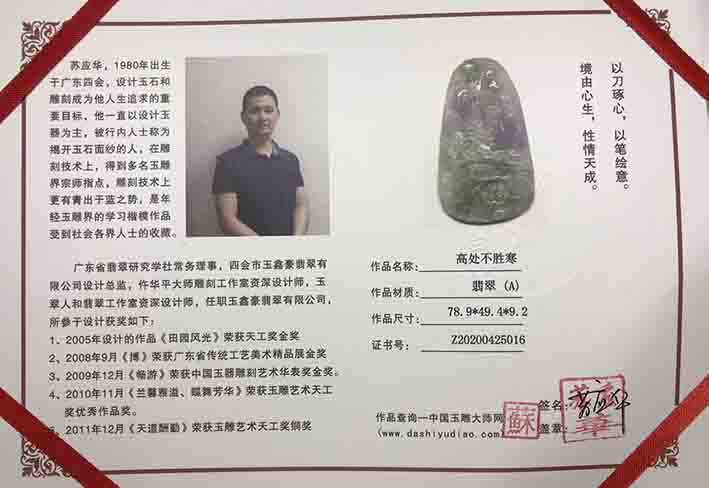 苏应华，1980年出生
于广东四会，设计玉石和
雕刻成为他人生追求的重
要目标，他一直以设计玉
器为主，被行内人士称为
揭开玉石面纱的人，在雕
刻技术上，得到多名玉雕
界宗师指点，雕刻技术上
更有青出于蓝之势，是年
轻玉雕界的学习楷模作品
受到社会各界人士的收藏。
广东省翡翠研究学社常务理事，四会市玉鑫豪翡翠有
限公司设计总监，仵华平大师雕刻工作室资深设计师，玉
翠人和翡翠工作室资深设计师，任职玉鑫豪翡翠有限公司，
所参于设计获奖如下：
1、2005年设计的作品《田园风光》荣获天工奖金奖
2、2008年9月《博》荣获广东省传统工艺美术精品展金奖
3、2009年12月《畅游》荣获中国玉器雕刻艺术华表奖金奖。
4、2010年11月《兰馨雅溢、蝶舞芳华》荣获玉雕艺术天工
奖优秀作品奖。
5、2011年12月《天道酬勤》荣获玉雕艺术天工奖铜奖
以刀琢心，以笔绘意。
境由心生，性情天成。
作品名称：高处不胜寒
作品材质：翡翠（A）
作品尺寸：78.9*49.4*9.2
证书号：Z20200425016
作品查询一中国玉雕大师网
(www.dashiyudiao.com)
签名：
盖章：
蘇